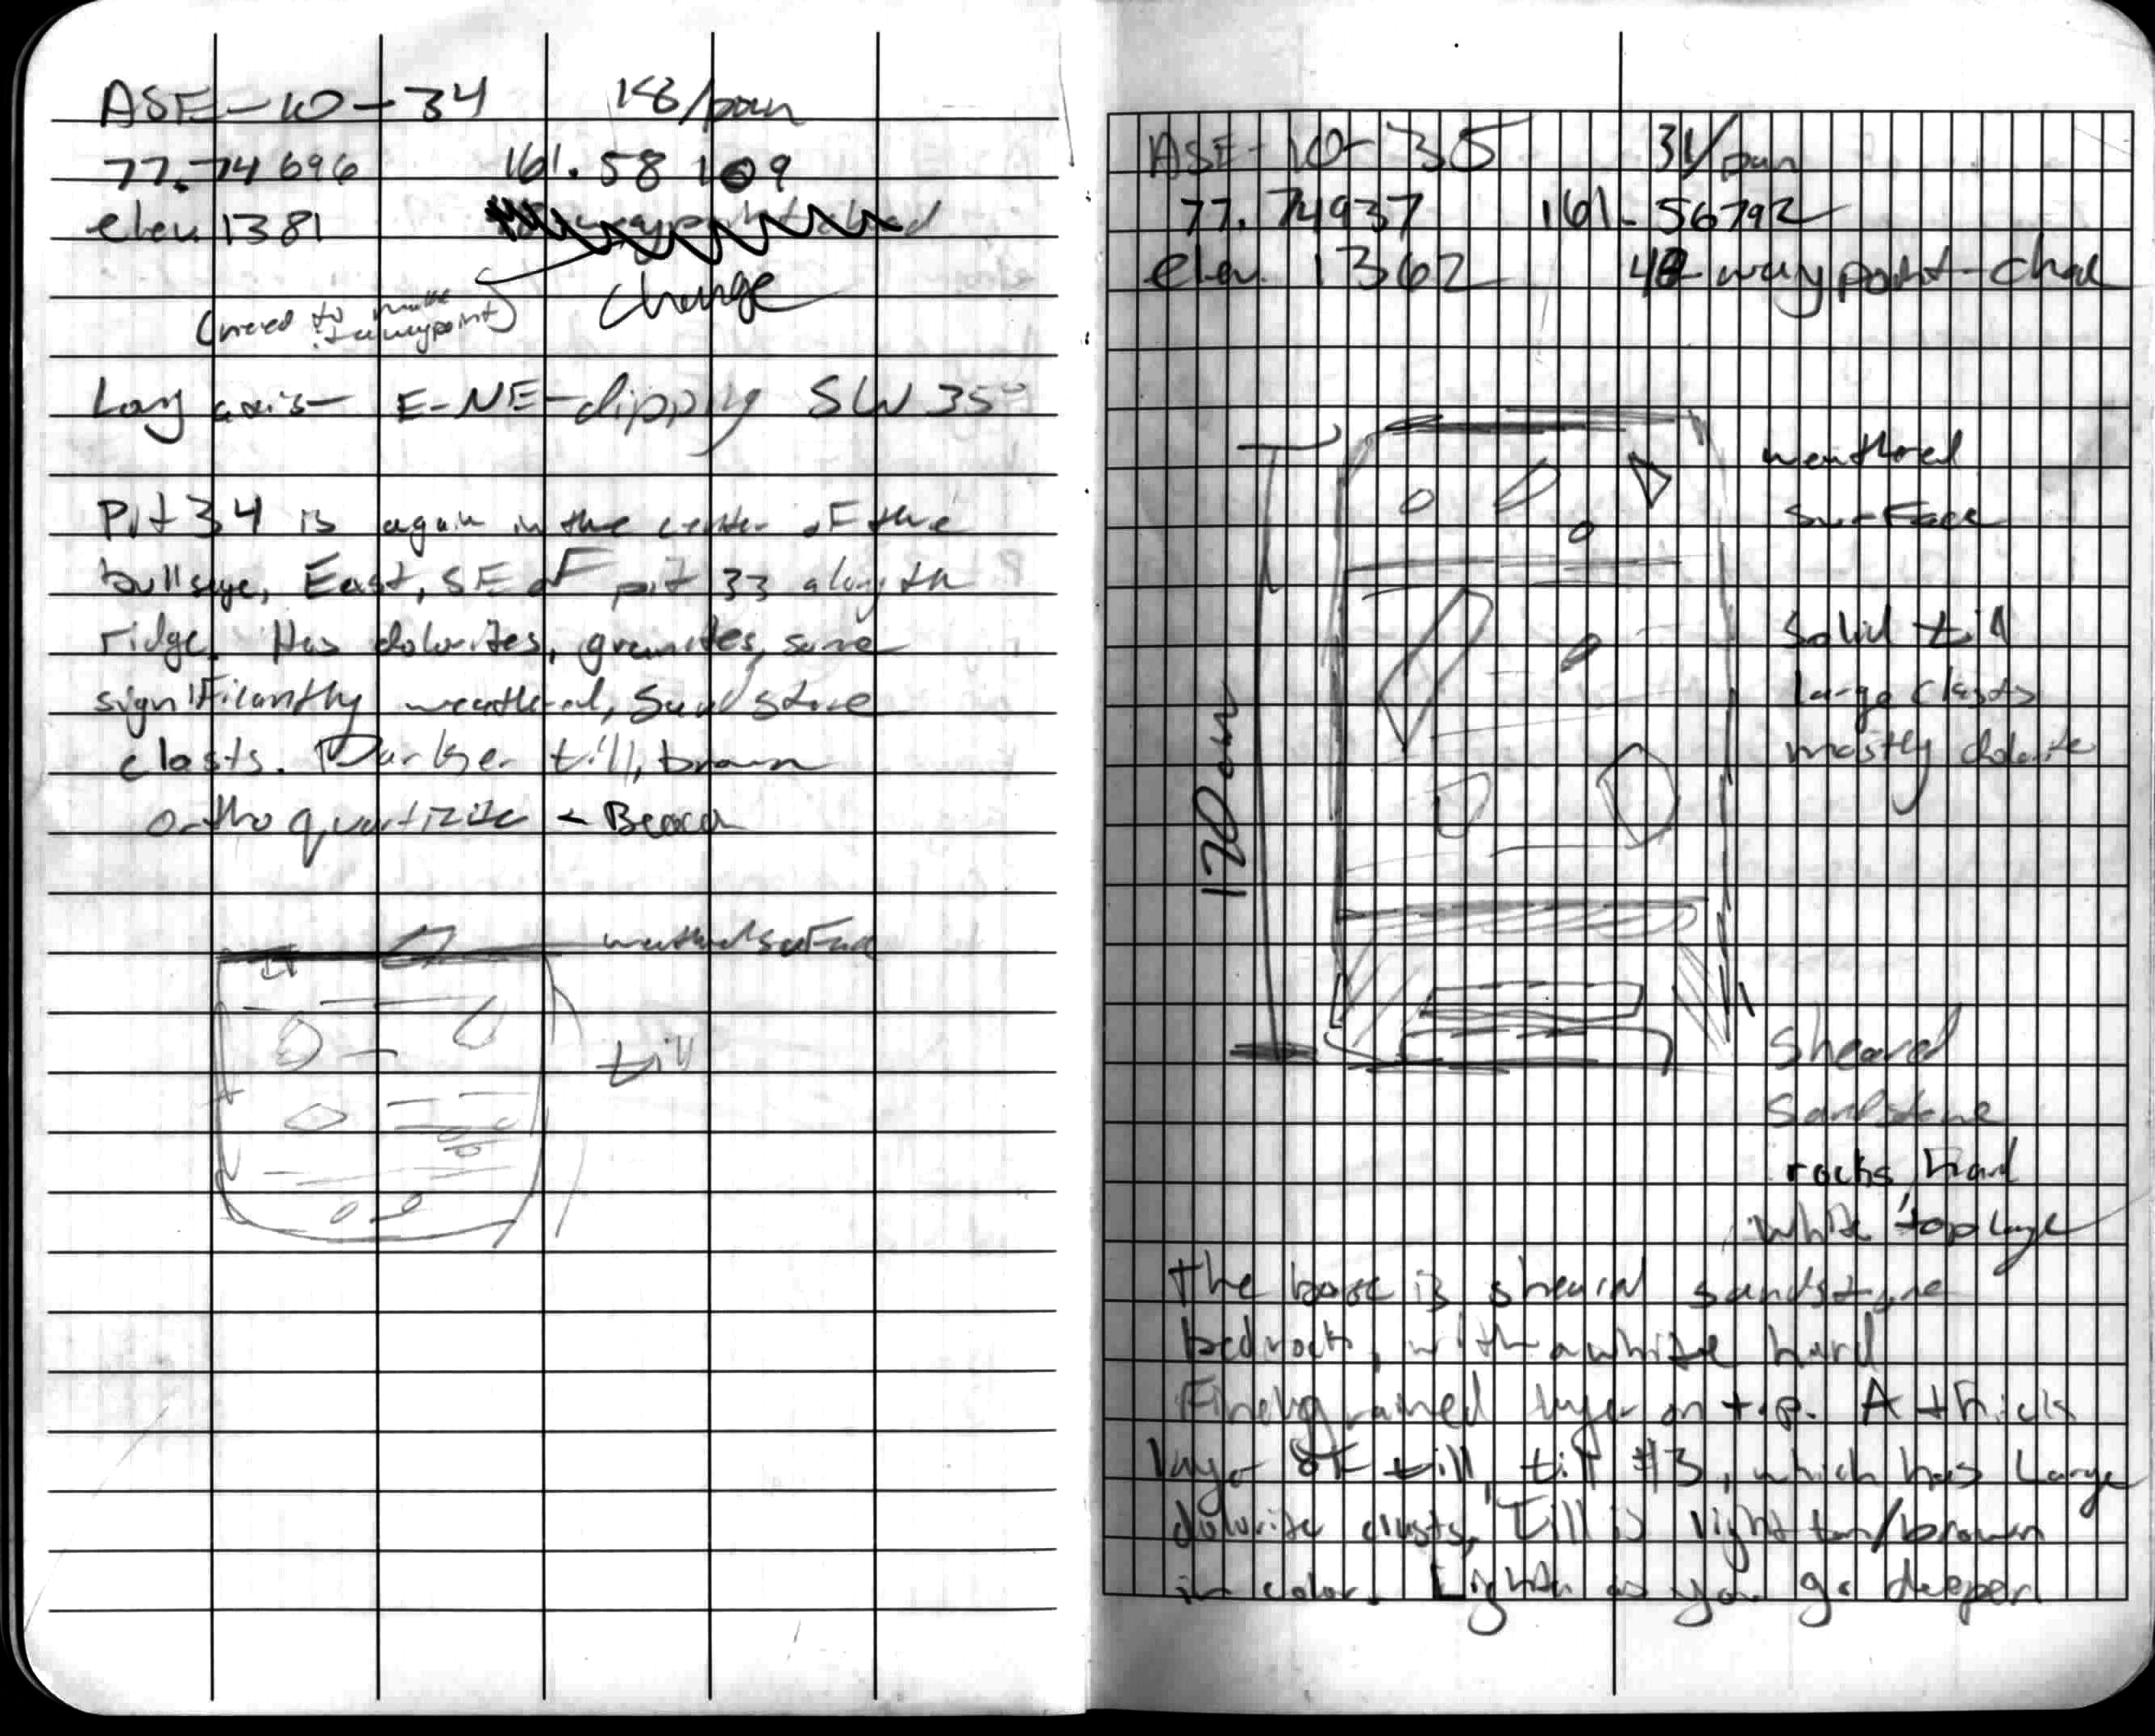 ASE-10-34 18/pan
77.74696 161.58109
elev. 1381 waypoint-chad
change
(need to make
waypoint)
Long axis- E-NE-dipping SW 35°
Pit 34 is again in the center of the
bullseye, East, SE of pit 33 along the
ridge. Has dolorites, granites, some
significantly weathered, sandstone
clasts. Darker till, brown
orthoquartizite - Beacon
weathered surface
till
ASE-10-35 31/pan
77.74937 161.56792
elev. 1362 waypoint-chad
weathered
surface
solid till
large clasts
mostly dolorite
170 cm
Sheared
Sandstone
rocks, hard
white top layer
The base is sheared sandstone
bedrock, with a white hard
Finely grained layer on top. A thick
layer of till, till #3, which has large
dolorite clasts, Till is light tan/brown
in color. Lighter as you go deeper